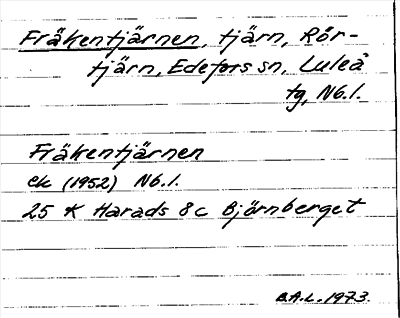 Fräkentjärnen, tjärn, Rör-
tjärn, Edefors sn, Luleå
tg, Nb.l.
Fräkentjärnen
ek (1952) Nb.l.
25 K Harads 8c Björnberget
B.A.L. 1973.